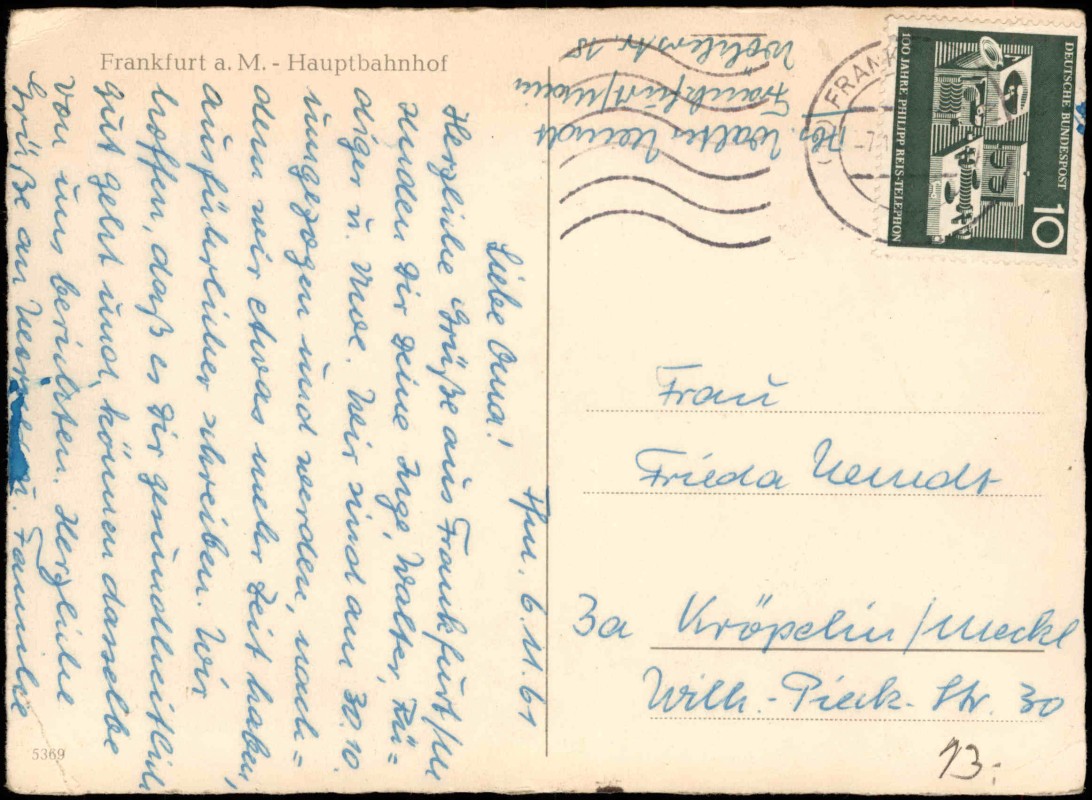 Frankfurt a. M. - Hauptbahnhof
Ffm. 6.11.61
Liebe Oma!
Herzliche Grüße aus Frankfurt/M
senden Dir Deine Inge, Walter, Rü=
diger u. Uwe. Wir sind am 30.10.
umgezogen und werden, nach=
dem wir etwas mehr Zeit haben,
ausführlicher schreiben. Wir
hoffen, daß es Dir gesundheitlich
gut geht und können dasselbe
von uns berichten. Herzliche
Grüße an Werner u. Familie
5369
Abs. Walter Wendt
Frankfurt/Main
Wöhlerstr 18
DEUTSCHE BUNDESPOST
10
100 JAHRE PHILIPP REIS-TELEPHON
Frau
Frieda Wendt
3a Kröpelin/Meckl
Wilh.-Pieck-Str. 30
13.-